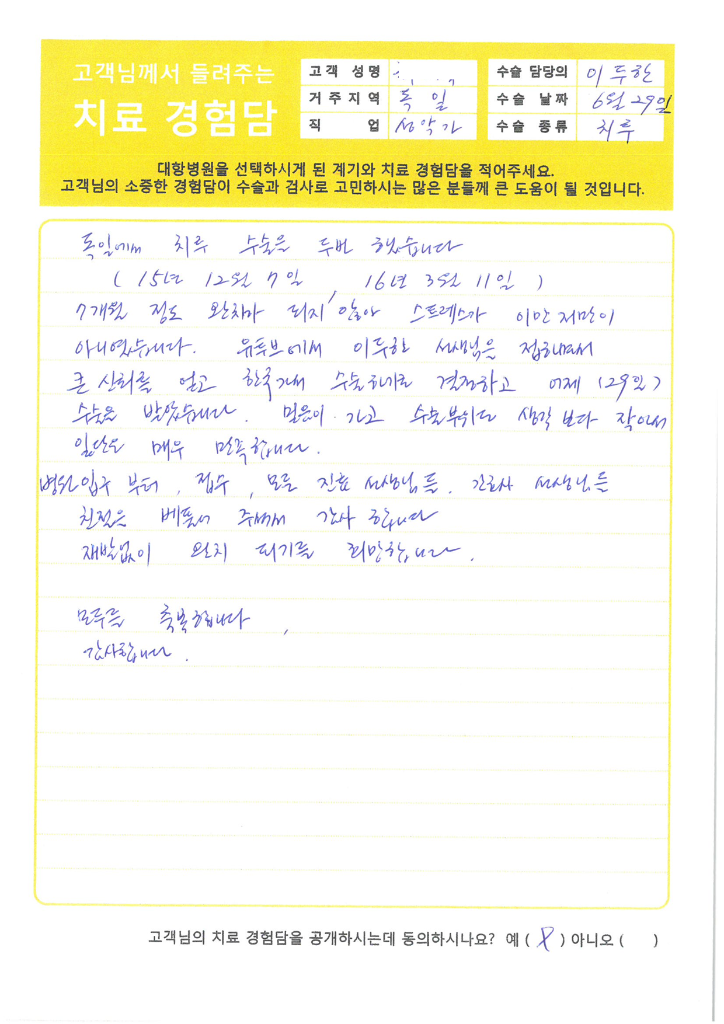 고객님께서 들려주는
치료 경험담
고객 성명
거주지역 독일
직 업 성악가
수술 담당의 이두한
수술 날짜 6월 29일
수술 종류 치루
대항병원을 선택하시게 된 계기와 치료 경험담을 적어주세요.
고객님의 소중한 경험담이 수술과 검사로 고민하시는 많은 분들께 큰 도움이 될 것입니다.
독일에서 치루 수술을 두번 했습니다
( 15년 12월 7일 , 16년 3월 11일 )
7개월 정도 완치가 되지 않아 스트레스가 이만저만이
아니였습니다. 유튜브에서 이두한 선생님을 접하면서
큰 신뢰를 얻고 한국가서 수술하기로 결정하고 어제 (29일)
수술을 받았습니다. 믿음이 가고 수술부위도 생각보다 작아서
일단은 매우 만족합니다.
병원입구 부터, 접수, 모든 진료 선생님들. 간호사 선생님들
친절을 베풀어 주셔서 감사 합니다
재발없이 완치 되기를 희망합니다.
모두를 축복합니다,
감사합니다.
고객님의 치료 경험담을 공개하시는데 동의하시나요? 예 ( ) 아니오 ( )